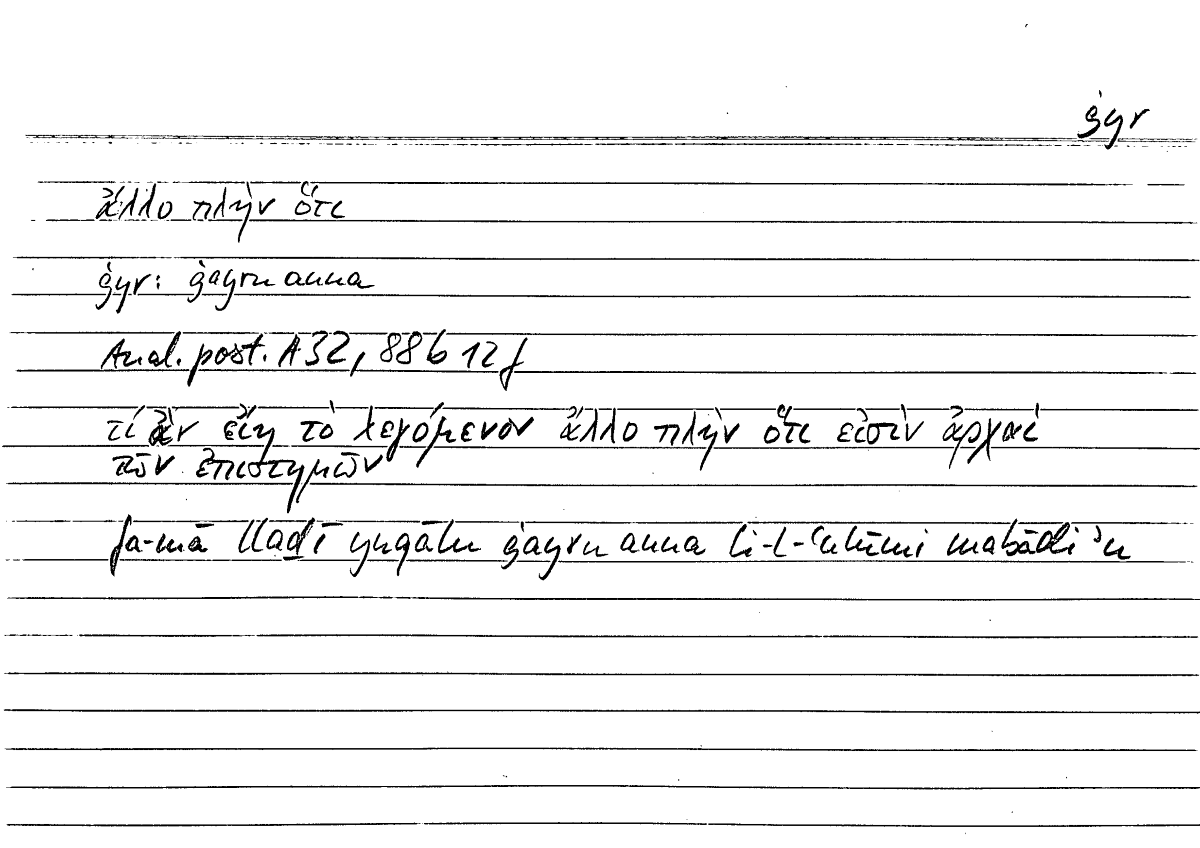 ġyr
ἄλλο πλὴν ὅτι
ġyr: ġayru anna
Anal. post. A 32, 88 b 12 f
τί ἂν εἴη τὸ λεγόμενον ἄλλο πλὴν ὅτι εἰσὶν ἀρχαὶ
τῶν ἐπιστημῶν
fa-mā lladī yuqālu ġayru anna li-l-ʿulūmi mabādiʾu